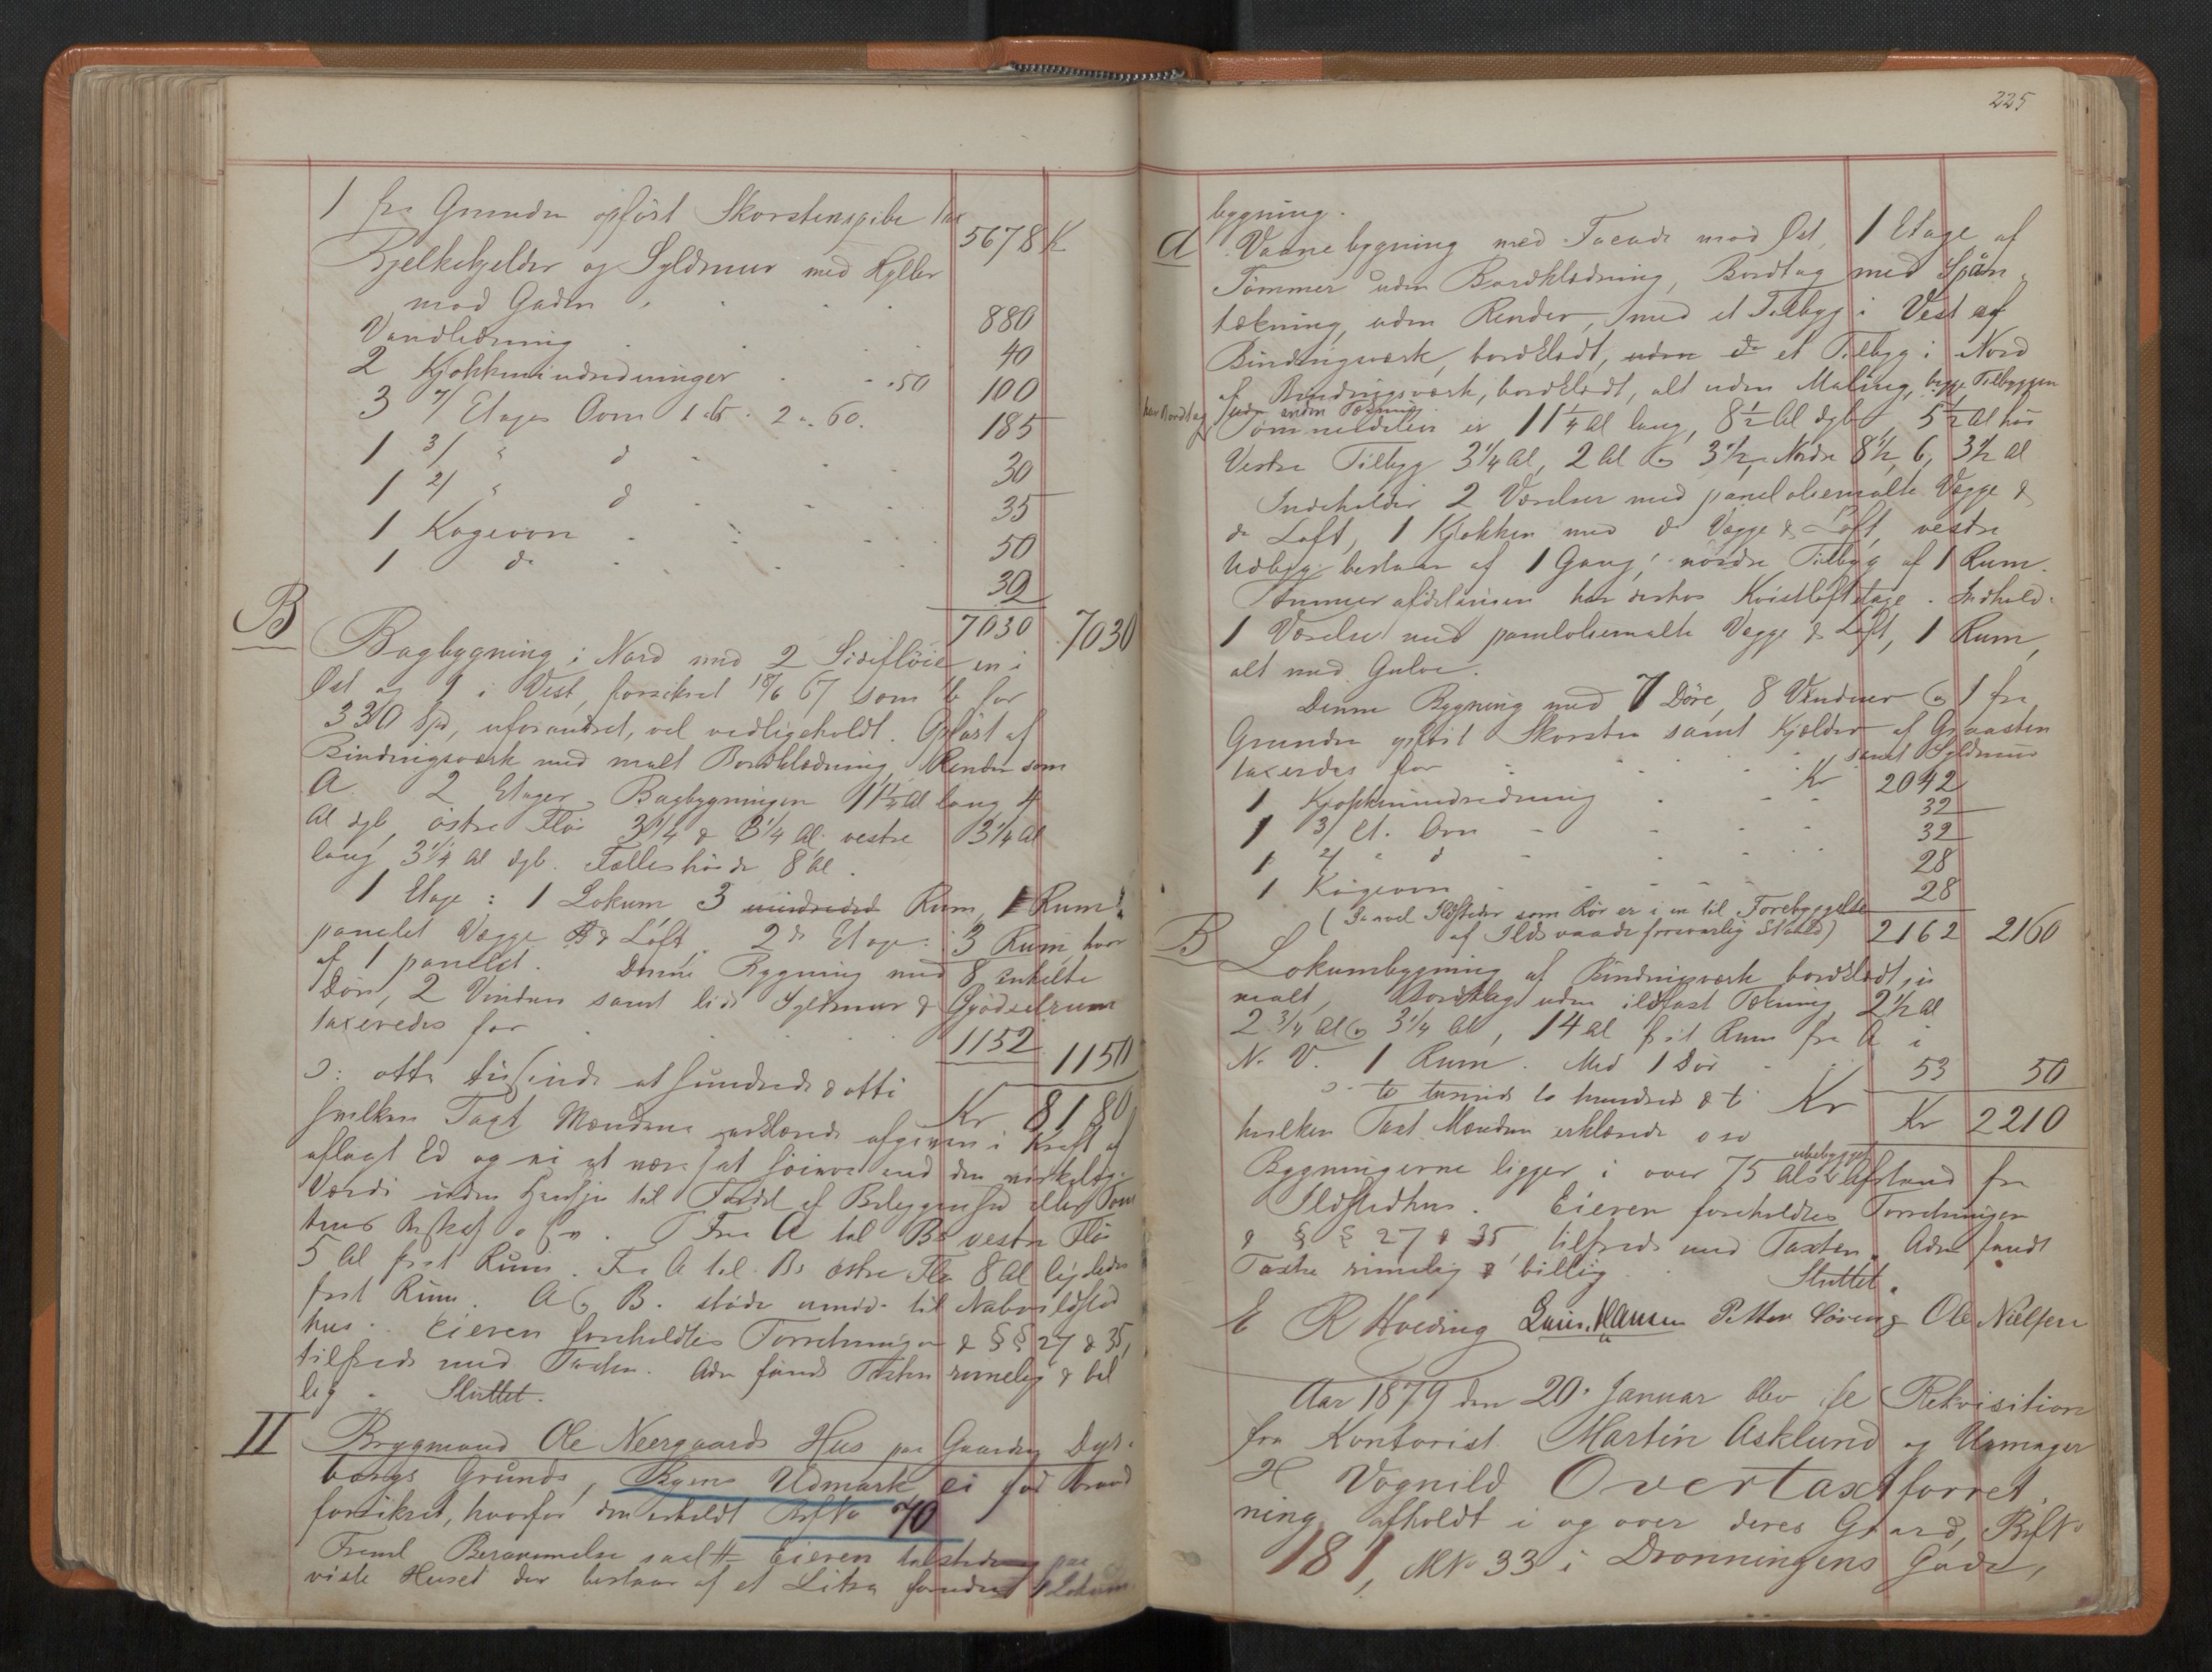 1 fra Grunden opført Skorstenspibe tax
5678 K
Bjelkekjelder og Syldmur med Hyller
mod Gaden 880
Vandledning 40
2 Kjøkkenindredninger . . 50 100
3 4/ Etages Ovne 1 65. 2 a 60. 185
1 3/ " d 30
1 2/ " d 35
1 Kogeovn 50
1 do 32
7030 7030
B Bagbygning i Nord med 2 Sidefløie en i
Øst og 1 i Vest, forsikret 18/6 67 som b for
330 Spd, uforandret, vel vedligeholdt. Opført af
Bindingsværk med malt Bordklædning, Render som
A. 2 Etager, Bagbygningen 11 1/2 Al lang 4
Al dyb, østre Fløi 3 1/4 & 3 1/4 Al. vestre 3 1/4 Al
lang, 3 1/4 Al dyb. Fælleshøide 8 Al.
1 Etage: 1 Lokum 3 Rum, 1 Rum d
panelet Vægge & Loft. 2de Etage: 3 Rum, hvor
af 1 panelet. Denne Bygning med 8 enkelte
Døre, 2 Vinduer samt lidt Syldmur & Gjødselrum
taxeredes for 1152 1150
ɔ: otte tusinde et hundrede & otti Kr 8180
hvilken Taxt Mændene erklærede afgiven i Kraft af
aflagt Ed og ei at være sat høiere end den virkelige
Værdi uden Hensyn til Fordel af Beliggenhed eller Tom
tens Beskaf. Fra A til Bs vestre Fløi
5 Al frit Rum. Fra A til Bs østre Fløi 8 Al ligeledes
frit Rum. A & B. støde umid. til Naboildsted
hus. Eieren foreholdtes Forretningen & §§ 27 & 35,
tilfreds med Taxten. Adm fandt Taxten rimelig & bil
lig. Sluttet.
II Brygmand Ole Neergaards Hus paa Gaarden Dyb.
borgs Grund, Byens Udmark ei før brand
forsikret, hvorfor den erholdt Brf No 70
Freml Berammelse saalt. Eieren tilstede paa
viste Huset der bestaar af et Litra foruden 1 Lokum
225
bygning.
A Vaanebygning med Facade mod Øst, 1 Etage af
Tømmer uden Bordklædning, Bordtag med Spån
tækning, uden Render, med et Tilbyg i Vest af
Bindingsværk, bordklædt, uden do et Tilbyg i Nord
af Bindingsværk, bordklædt, alt uden Maling, begge Tilbyggen
har Bordtag uden anden Tækning
Tømmerdelen er 11 1/4 Al lang, 8 1/2 Al dyb, 5 1/2 Al høi
Vestre Tilbyg 3 1/4 Al, 2 Al & 3 1/2, Nordre 8 1/2, 6, 3 1/2 Al
Indeholder 2 Værelser med panel oliemalte Vægge &
do Loft, 1 Kjøkken med do Vægge & Loft, vestre
Udbyg bestaar af 1 Gang, nordre Tilbyg af 1 Rum.
Tømmerafdelingen har derhos Kvistloftetage. Indhold.
1 Værelse med paneloliemalte Vægge & Loft, 1 Rum,
alt med Gulve.
Denne Bygning med 7 Døre, 8 Vinduer & 1 fra
Grunden opført Skorsten samt Kjælder af Graasten
samt Syldmur
taxerdes for Kr 2042
1 Kjøkkenindredning 32
1 3/ Et. Ovn 32
1 2/ " d 28
1 Kogeovn 28
(Saavel Ildsteder som Rør er i en til Forebyggelse
af Ildsvaade forsvarlig Stand) 2162 2160
B Lokumbygning af Bindingsværk bordklædt, ei
malt, Bordtag uden ildfast Tækning, 2 1/2 Al
2 3/4 Al & 3 1/4 Al, 14 Al frit Rum fra A i
N. V. 1 Rum. Med 1 Dør 53 50
ɔ: to tusinde to hundrede & ti Kr Kr 2210
hvilken Taxt Mændene erklærede o sv
ubebygget
Bygningerne ligger i over 75 Als Afstand fra
Ildstedhus. Eieren foreholdtes Forretningen
& §§ 27 & 35, tilfreds med Taxten. Adm fandt
Taxten rimelig & billig. Sluttet.
E R Hveding Louis Hansen Petter Sørensen Ole Nielsen
Aar 1879 den 20. Januar blev ifl Rekvisition
fra Kontorist Martin Asklund og Urmager
H Vognild Overtaxtforret.
ning afholdt i og over deres Gaard, Brf No
181, M No 33 i Dronningens Gade,